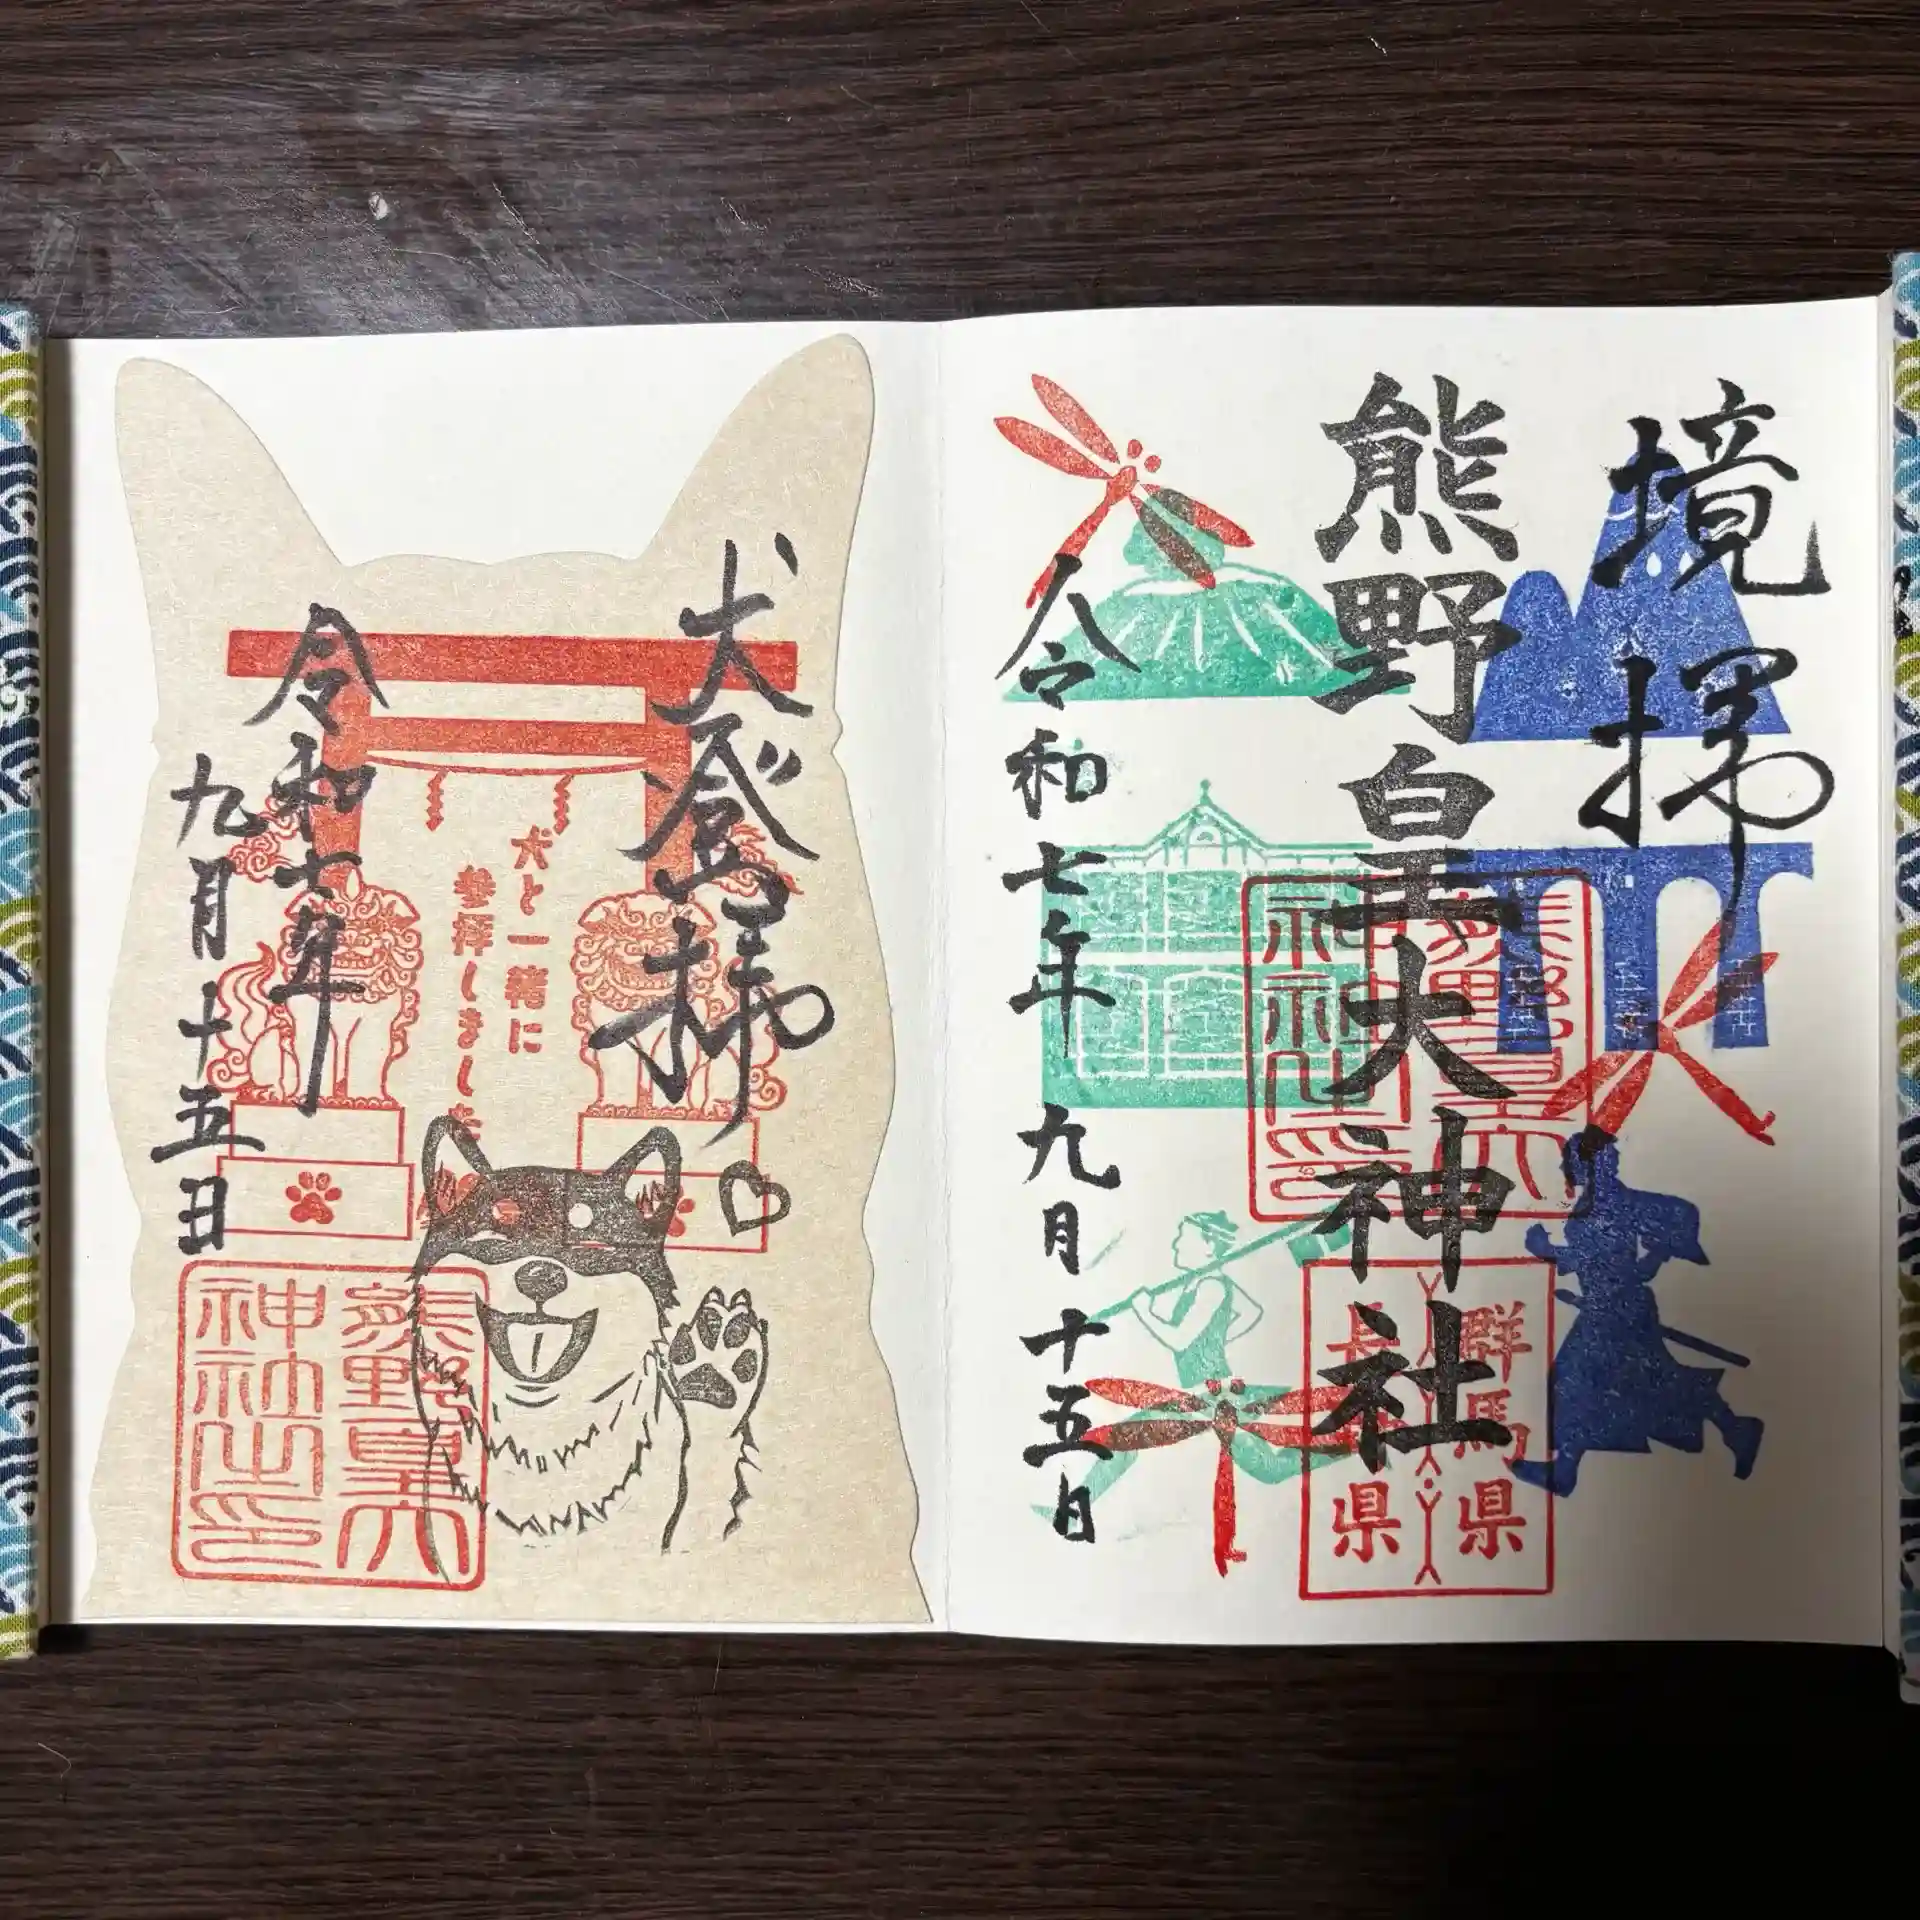 境拝
熊野皇大神社
熊野皇大
神社之印
群馬県
長野県
令和七年九月十五日
犬登拝
犬と一緒に
参拝しました
令和七年
九月十五日
熊野皇大
神社之印